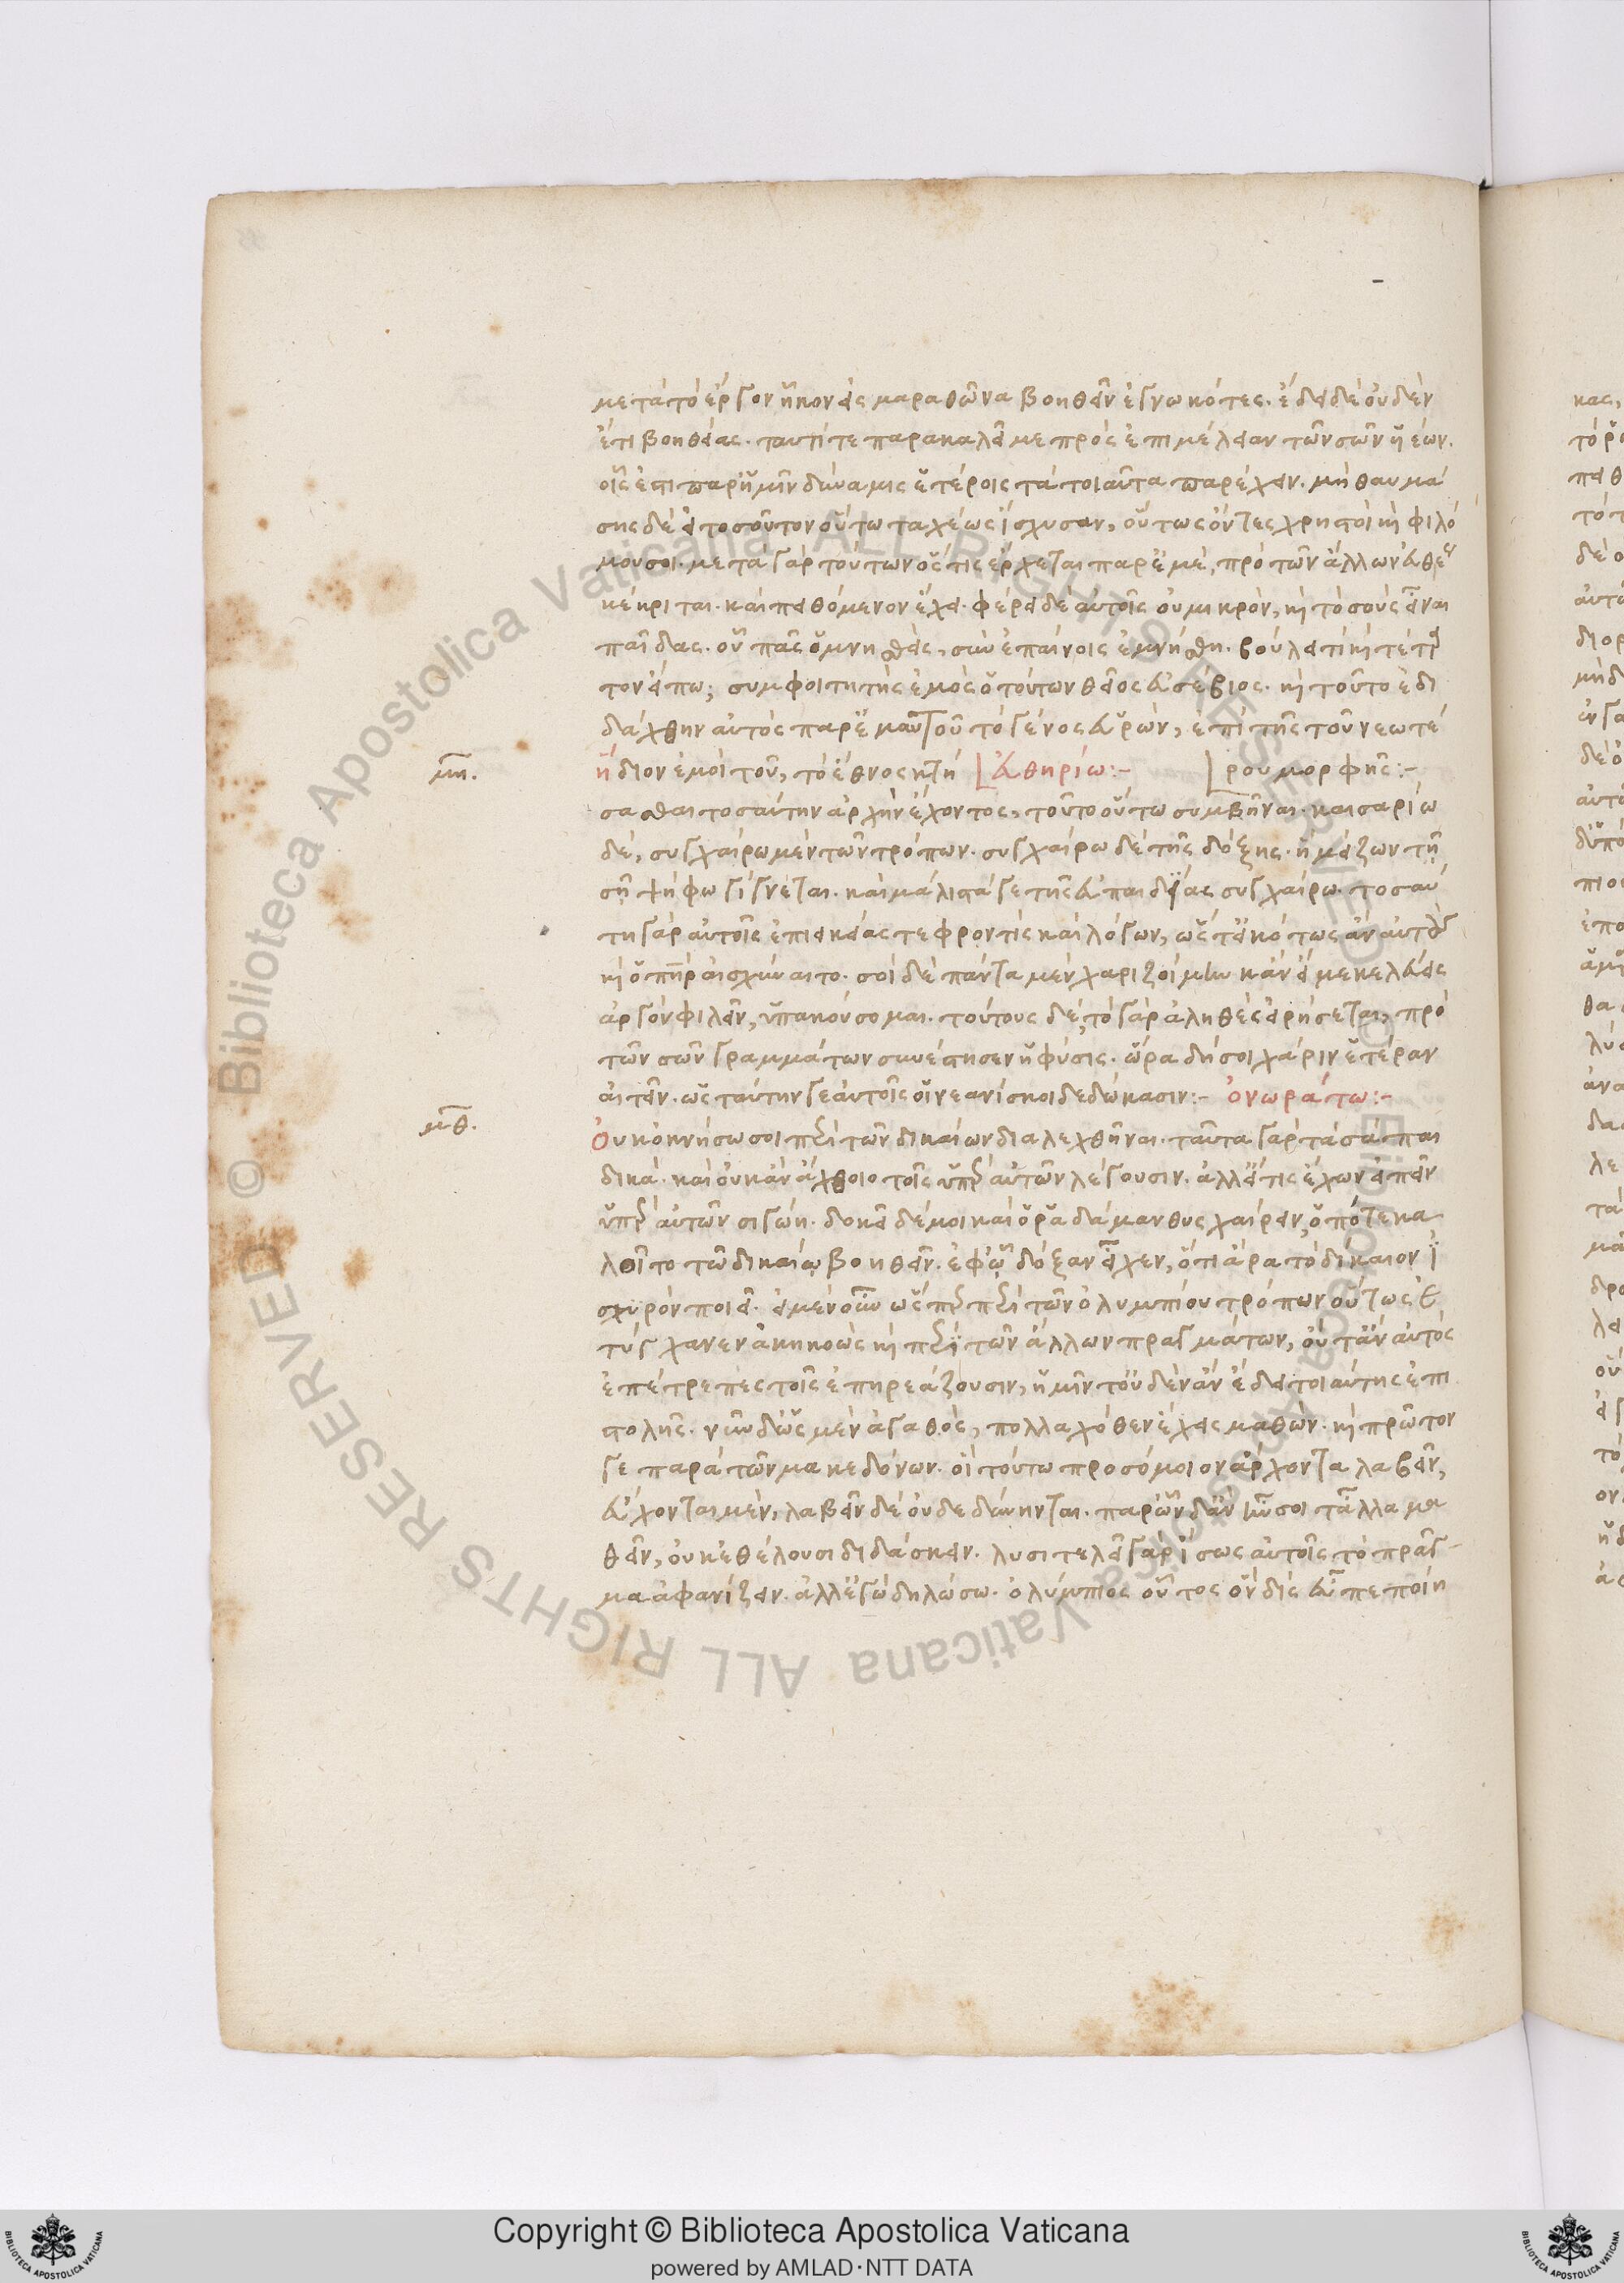 μετὰ τὸ ἔργον ἧκον εἰς μαραθῶνα βοηθεῖν ἐγνωκότες. ἔδει δὲ οὐδὲν
ἔτι βοηθείας. ταυτί τε παρακαλεῖ με πρὸς ἐπιμέλειαν τῶν σῶν ὑέων.
οἷς ἐστι παρ' ἡμῖν δύναμις ἑτέροις τὰ τοιαῦτα παρέχειν. μὴ θαυμά
σῃς δὲ εἰ τοσοῦτον οὕτω ταχέως ἴσχυσαν, οὕτως ὄντες χρηστοὶ κ φιλό
μουσοι. μετὰ γὰρ τούτων ὅστις ἔρχεται παρ' ἐμέ, πρὸ τῶν ἄλλων εὐθὺς
κέκριται. καὶ πειθόμενον ἔχει. φέρει δὲ αὐτοῖς οὐ μικρὸν, κ τὸ σοὺς εἶναι
παῖδας. οὗ πᾶς ὁ μνησθεὶς, σὺν ἐπαίνοις ἐμνήσθη. βούλει τί κ τέταρ
τον εἴπω; συμφοιτητὴς ἐμὸς ὁ τούτων θεῖος εὐσέβιος. κ τοῦτο ἐδι
δάχθην αὐτὸς παρ' ἐμαυτοῦ τὸ γένος εὑρὼν, ἐπὶ τῆς τοῦ νεωτέ
μη. ἥδιον ἐμοὶ τοῦ, τὸ ἔθνος κτή εὐθηρίω:- ρου μορφῆς:-
σασθαι τοσαύτην ἀρχὴν ἔχοντος, τοῦτο οὕτω συμβῆναι. καισαρίω
δὲ, συγχαίρω μὲν τῶν τρόπων. συγχαίρω δὲ τῆς δόξης. ἣ μείζων τῇ
σῇ ψήφω γίγνεται. καὶ μάλιστά γε τῆς εὐπαιδίας συγχαίρω. τοσαύ
τη γὰρ αὐτοῖς ἐπιεικείας τε φροντὶς καὶ λόγων, ὥστ' εἰκότως ἂν αὐτοῖς
κ ὁ πατὴρ αἰσχύναιτο. σοὶ δὲ πάντα μὲν χαριζοίμην κἂν εἴ με κελεύεις
ἀργὸν φιλεῖν, ὑπακούσομαι. τούτους δὲ, τὸ γὰρ ἀληθὲς εἰρήσεται, πρὸ
τῶν σῶν γραμμάτων συνέστησεν ἡ φύσις. ὥρα δή σοι χάριν ἑτέραν
αἰτεῖν. ὡς ταύτην γε αὐτοῖς οἱ νεανίσκοι δεδώκασιν:- ὀνωράτω:-
μθ. Οὐκ ὀκνήσω σοι περὶ τῶν δικαίων διαλεχθῆναι. ταῦτα γὰρ τὰ σὰ παι
δικὰ. καὶ οὐκ ἂν ἄχθοιο τοῖς ὑπὲρ αὐτῶν λέγουσιν. ἀλλ' εἴ τις ἔχων εἰπεῖν
ὑπὲρ αὐτῶν σιγώη. δοκεῖ δέ μοι καὶ ὁ ῥαδάμανθυς χαίρειν, ὁπότε κα
λοῖτο τῶ δικαίῳ βοηθεῖν. ἐφ' ᾧ δόξαν εἶχεν, ὅτι ἄρα τὸ δίκαιον ἰ
σχυρὸν ποιεῖ. εἰ μὲν οὖν ὥσπερ περὶ τῶν ὀλυμπίου τρόπων οὕτως ἐ
τύγχανεν ἀκηκοὼς κ περὶ τῶν ἄλλων πραγμάτων, οὔτ' ἂν αὐτὸς
ἐπέτρεπες τοῖς ἐπηρεάζουσιν, ἡμῖν τ' οὐδὲν ἂν ἔδει τοιαύτης ἐπι
στολῆς. νῦν δ' ὡς μὲν ἀγαθὸς, πολλαχόθεν ἔχεις μαθὼν. κ πρῶτον
γε παρὰ τῶν μακεδόνων. οἳ τούτω προσόμοιον ἄρχοντα λαβεῖν,
εὔχονται μὲν, λαβεῖν δὲ οὐδὲ δύνηνται. παρ' ὧν δ' ἂν ἦν σοι τἆλλα μα
θεῖν, οὐκ ἐθέλουσι διδάσκειν. λυσιτελεῖ γὰρ ἴσως αὐτοῖς τὸ πρᾶγ
μα ἀφανίζειν. ἀλλ' ἐγὼ δηλώσω. ὀλύμπιος οὗτος οὓν δὶς εὖ πεποίη
Copyright © Biblioteca Apostolica Vaticana
powered by AMLAD·NTT DATA